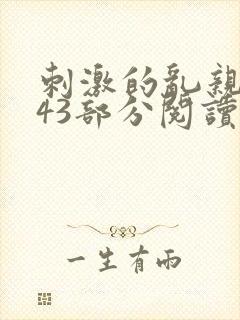 刺激的乱親
43部分閱讀
一生有兩